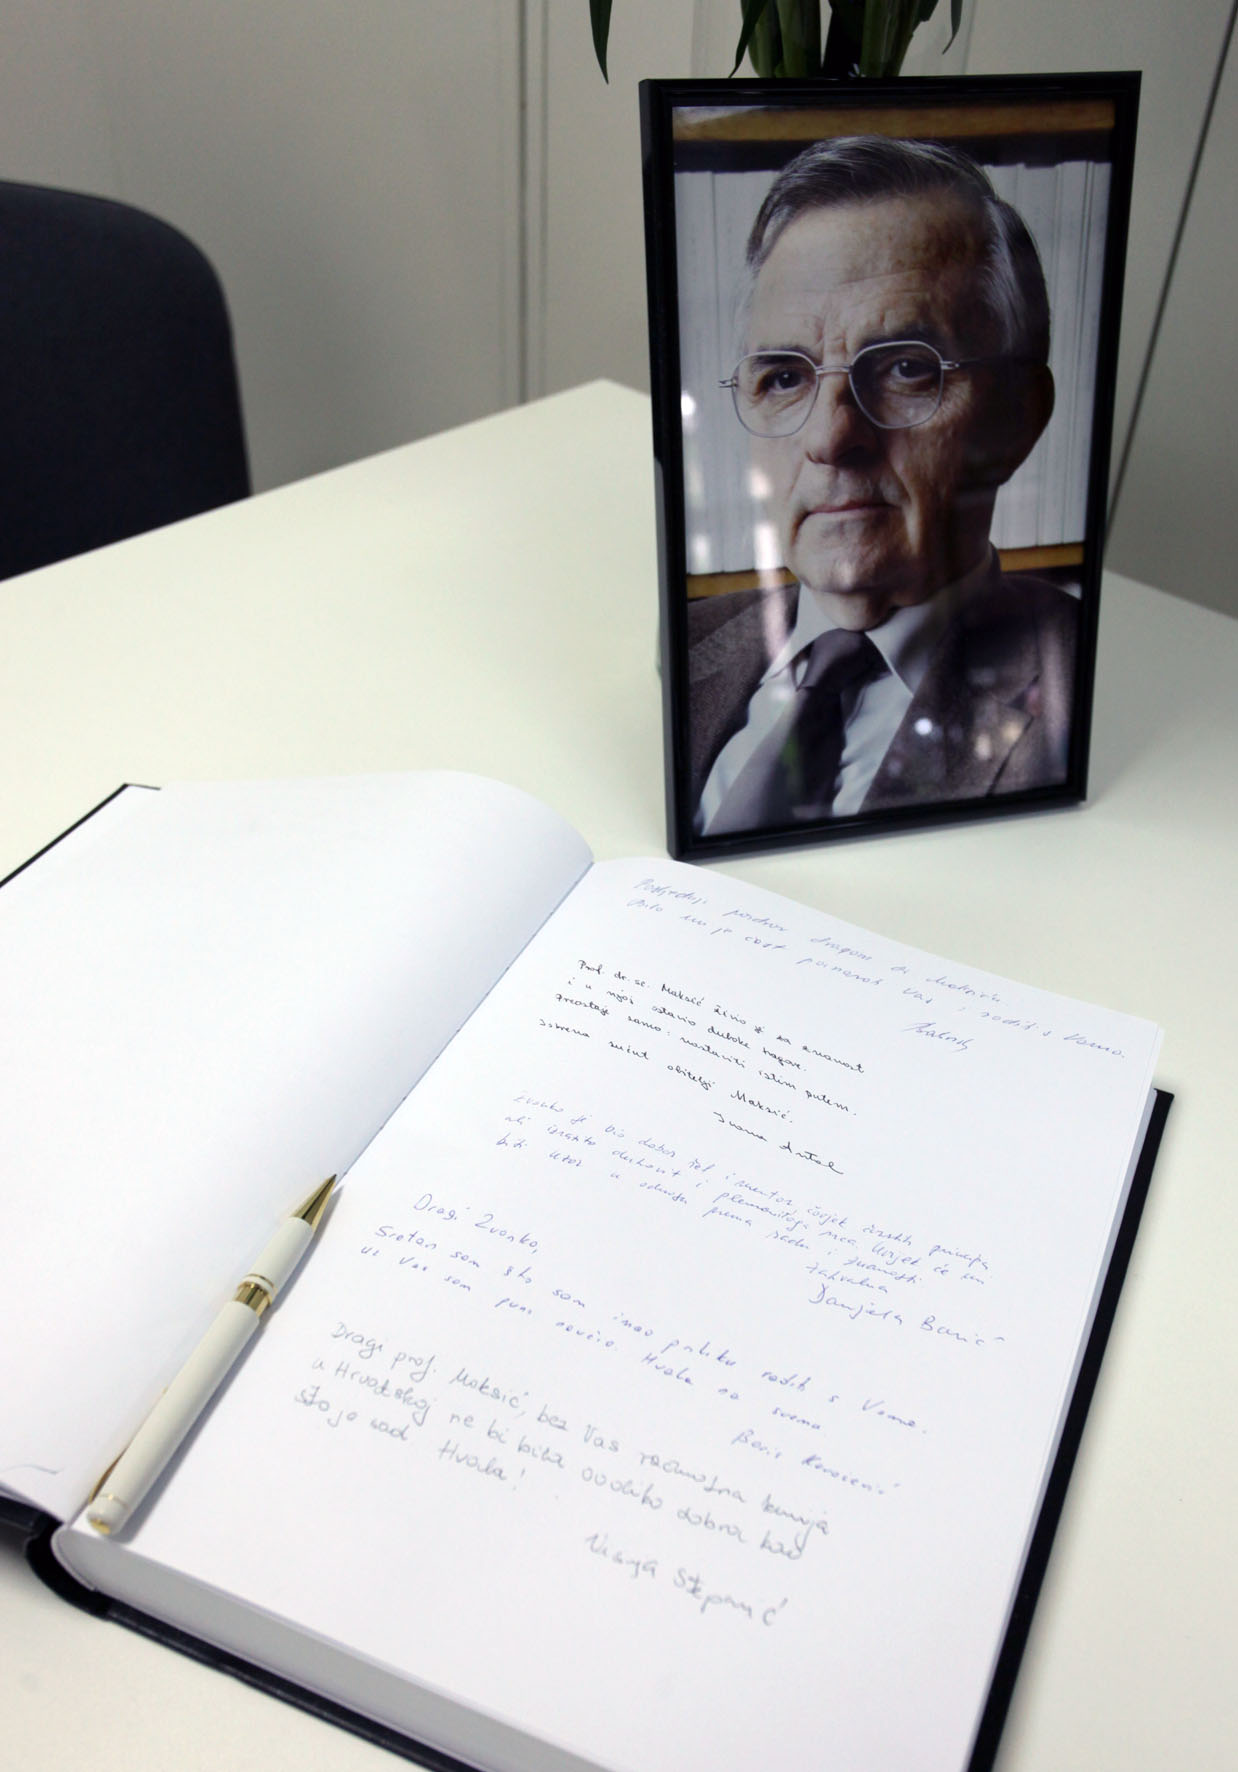 Posljednji pozdrav dragom dr. Maksiću
Bila mi je čast poznavati Vas i raditi s Vama.
Prof. dr. sc. Maksić živio je za znanost
i u njoj ostavio duboke tragove.
Preostaje samo: nastaviti istim putem.
Iskrena sućut obitelji Maksić.
Ivana Antol
Zvonko je bio dobar šef i mentor, čovjek čvrstih principa
ali izrazito duhovit i plemenitoga srca. Uvijek će mi
biti uzor u odnosu prema radu i znanosti
Zahvalna
Danijela Barić
Dragi Zvonko,
Sretan sam što sam imao priliku raditi s Vama.
Uz Vas sam puno naučio. Hvala na svemu
Boris Kovačević
Dragi prof. Maksić, bez Vas računalna kemija
u Hrvatskoj ne bi bila ovoliko dobra kao
što je sad. Hvala!
Višnja Stepanić